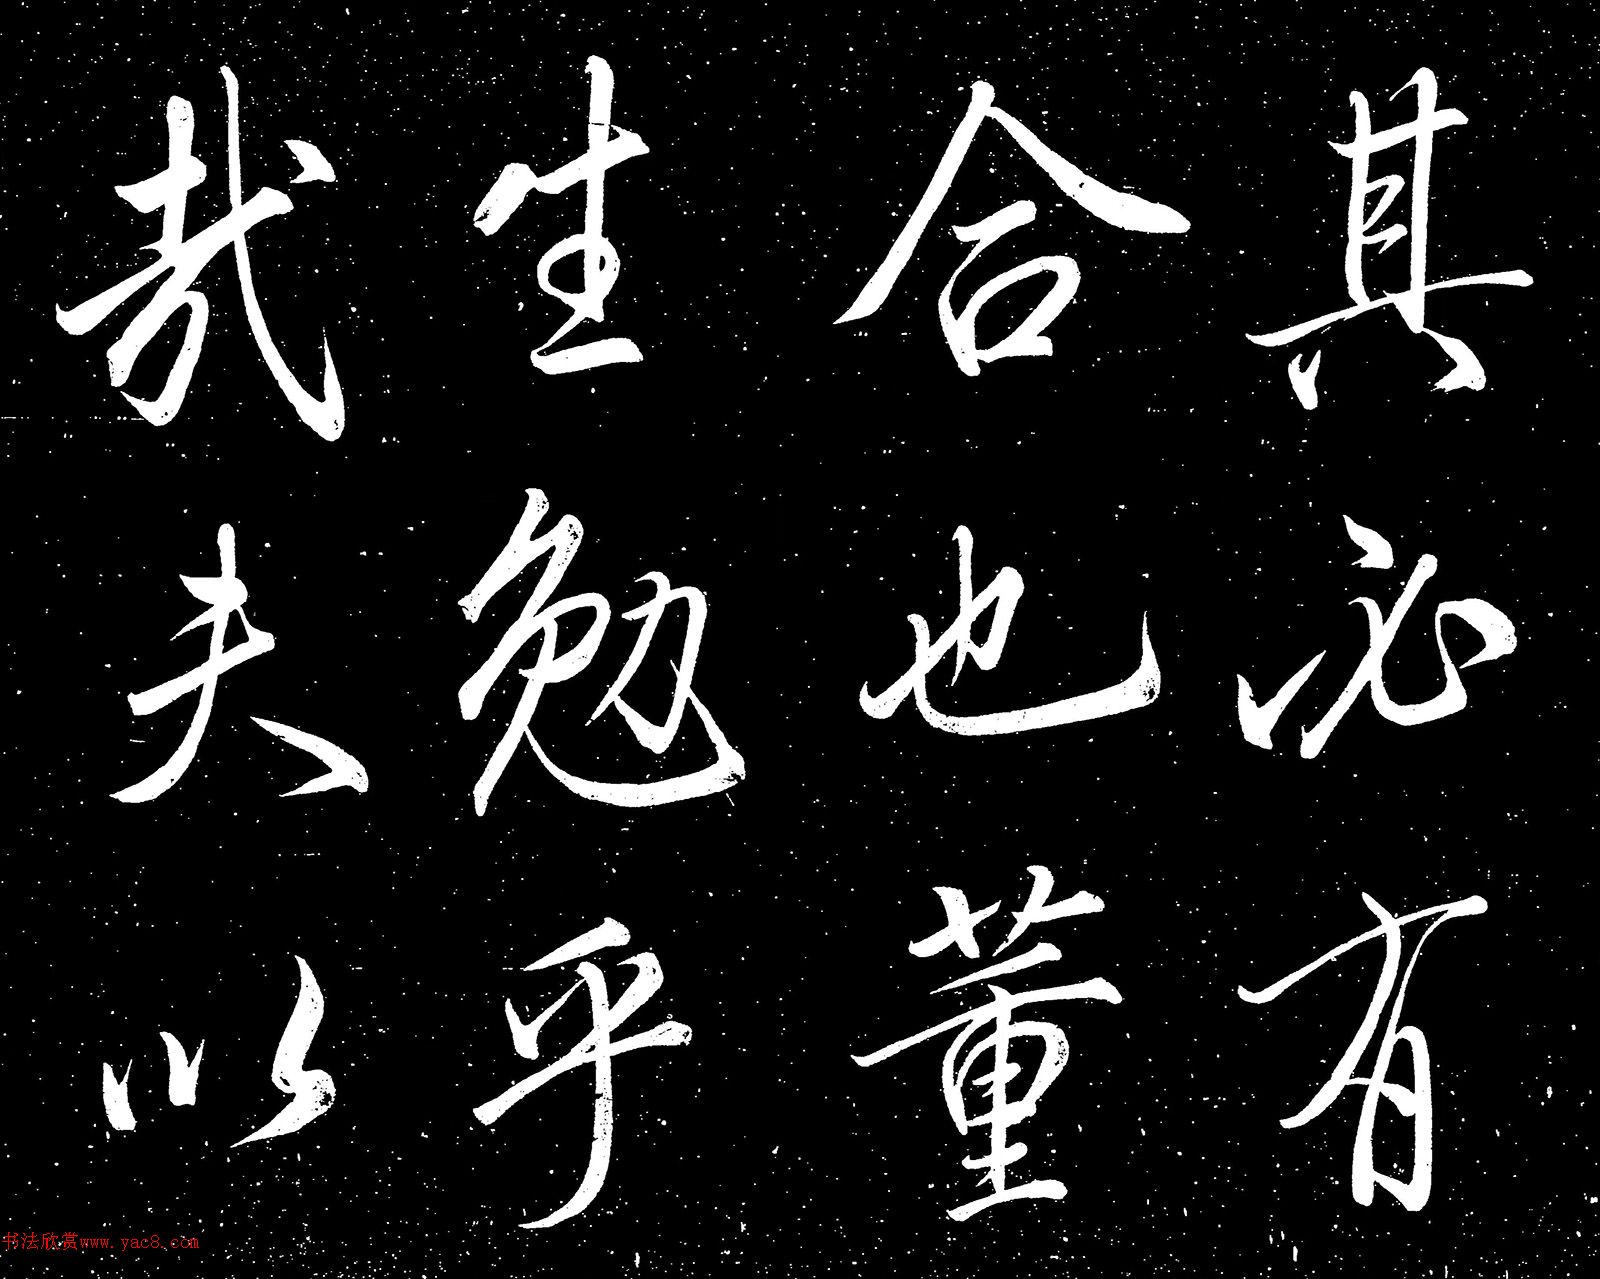 其必有
合也董
生勉乎
哉夫以
书法欣赏www.yac8.com